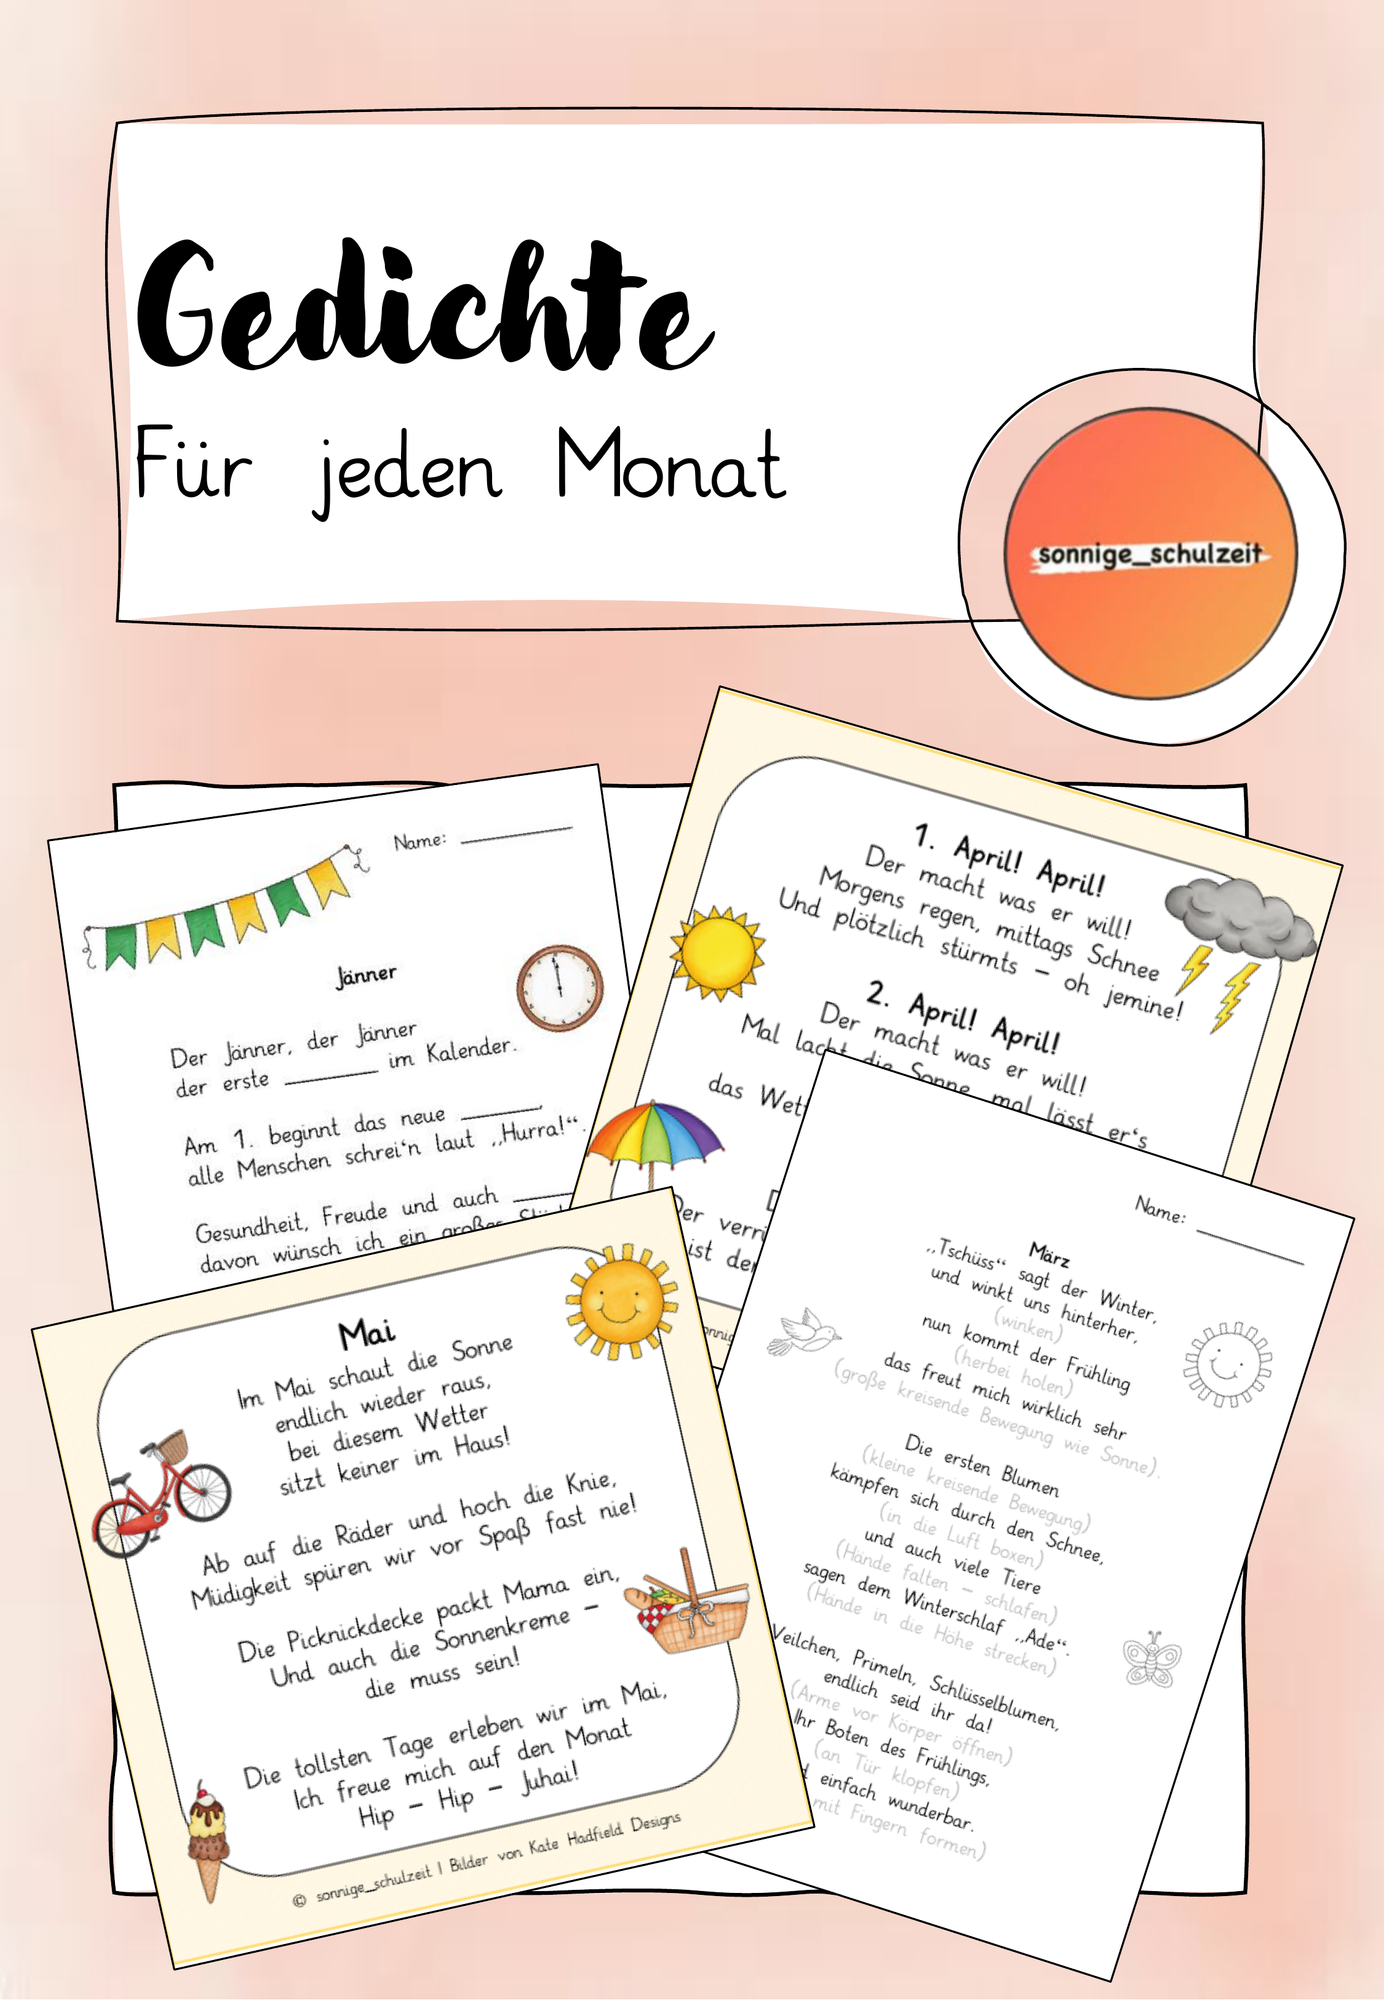 Gedichte
Für jeden Monat
sonnige_schulzeit
Name: ________
Jänner
Der Jänner, der Jänner
der erste ________ im Kalender.
Am 1. beginnt das neue ________,
alle Menschen schrei'n laut „Hurra!“.
Gesundheit, Freude und auch ________
davon wünsch ich ein großes
1. April! April!
Der macht was er will!
Morgens regen, mittags Schnee
Und plötzlich stürmts – oh jemine!
2. April! April!
Der macht was er will!
Mal lacht die Sonne, mal lässt er's
das
Der
ist
Mai
Im Mai schaut die Sonne
endlich wieder raus,
bei diesem Wetter
sitzt keiner im Haus!
Ab auf die Räder und hoch die Knie,
Müdigkeit spüren wir vor Spaß fast nie!
Die Picknickdecke packt Mama ein,
Und auch die Sonnenkreme –
die muss sein!
Die tollsten Tage erleben wir im Mai,
Ich freue mich auf den Monat
Hip – Hip – Juhai!
© sonnige_schulzeit | Bilder von Kate Hadfield Designs
Name: ________
März
„Tschüss“ sagt der Winter,
und winkt uns hinterher,
(winken)
nun kommt der Frühling
(herbei holen)
das freut mich wirklich sehr
(große kreisende Bewegung wie Sonne).
Die ersten Blumen
(kleine kreisende Bewegung)
kämpfen sich durch den Schnee,
(in die Luft boxen)
und auch viele Tiere
(Hände falten – schlafen)
sagen dem Winterschlaf „Ade“.
(Hände in die Höhe strecken)
Veilchen, Primeln, Schlüsselblumen,
endlich seid ihr da!
(Arme vor Körper öffnen)
Ihr Boten des Frühlings,
(an Tür klopfen)
einfach wunderbar.
mit Fingern formen)